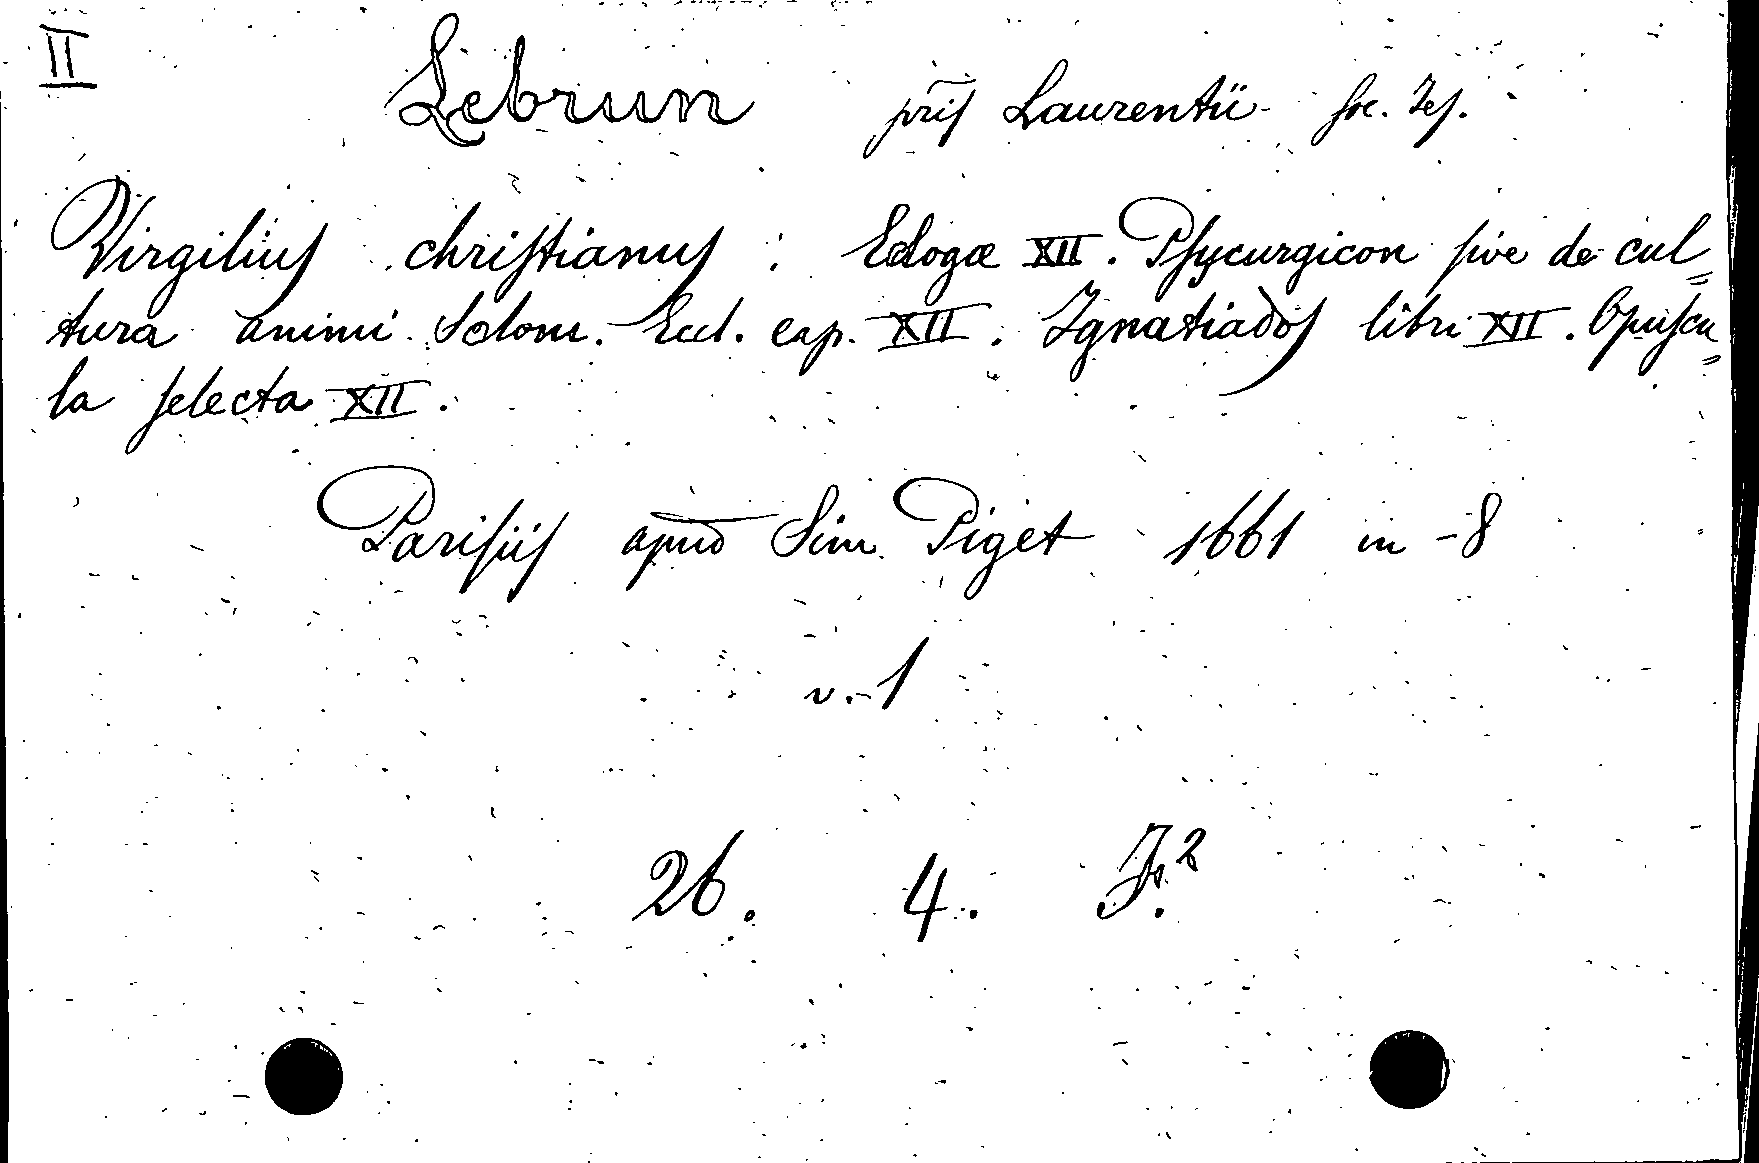 II
Lebrun pr̄is Laurentii Soc. Jes.
Virgilius christianus : Eclogæ XII. Psycurgicon sive de cul=
tura animi Solom. Eccl. cap. XII. Ignatiados libri XII. Opuscu=
la selecta XII.
Parisiis apud Sim. Piget 1661 in-8
v.-1
26. 4. J.²